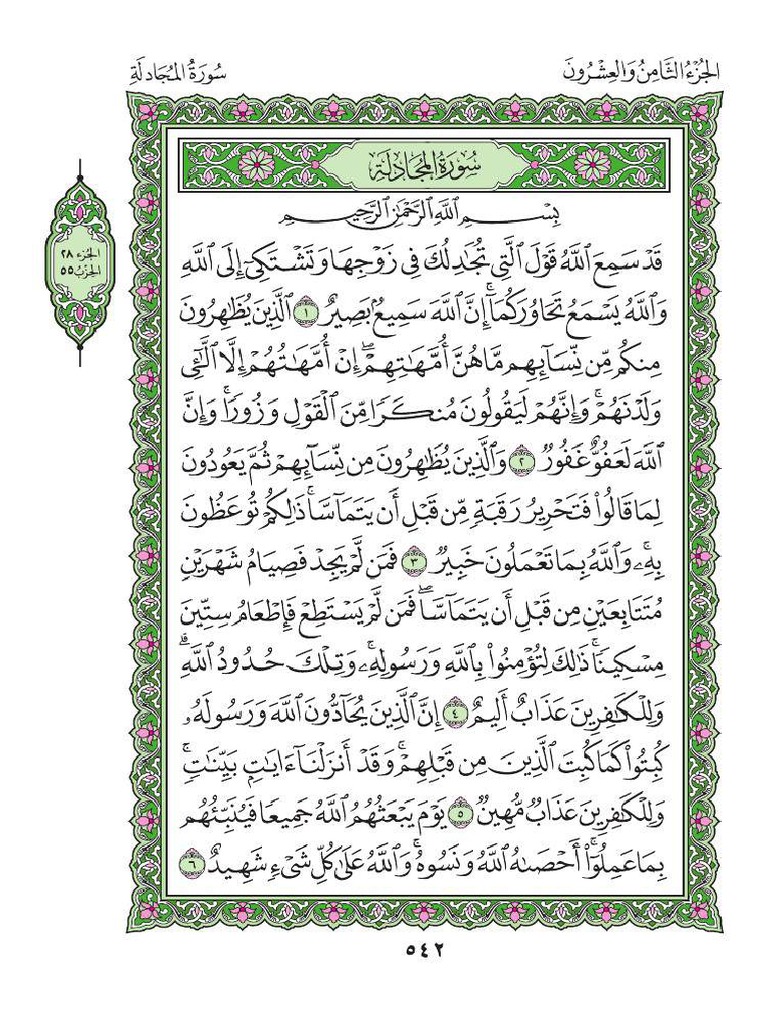 الجُزْءُ الثَّامِنُ وَالْعِشْرُونَ
سُورَةُ المُجَادلَةِ
سُورَةُ المُجَادِلَةِ
الجُزء ٢٨
الحِزبُ ٥٥
بِسْمِ ٱللَّهِ ٱلرَّحْمَٰنِ ٱلرَّحِيمِ
قَدْ سَمِعَ ٱللَّهُ قَوْلَ ٱلَّتِي تُجَٰدِلُكَ فِي زَوْجِهَا وَتَشْتَكِيٓ إِلَى ٱللَّهِ
وَٱللَّهُ يَسْمَعُ تَحَاوُرَكُمَآۚ إِنَّ ٱللَّهَ سَمِيعٌۢ بَصِيرٌ ١ ٱلَّذِينَ يُظَٰهِرُونَ
مِنكُم مِّن نِّسَآئِهِم مَّا هُنَّ أُمَّهَٰتِهِمْۖ إِنْ أُمَّهَٰتُهُمْ إِلَّا ٱلَّٰٓـِٔي
وَلَدْنَهُمْۚ وَإِنَّهُمْ لَيَقُولُونَ مُنكَرًا مِّنَ ٱلْقَوْلِ وَزُورًاۚ وَإِنَّ
ٱللَّهَ لَعَفُوٌّ غَفُورٌ ٢ وَٱلَّذِينَ يُظَٰهِرُونَ مِن نِّسَآئِهِمْ ثُمَّ يَعُودُونَ
لِمَا قَالُوا۟ فَتَحْرِيرُ رَقَبَةٍ مِّن قَبْلِ أَن يَتَمَآسَّاۚ ذَٰلِكُمْ تُوعَظُونَ
بِهِۦۚ وَٱللَّهُ بِمَا تَعْمَلُونَ خَبِيرٌ ٣ فَمَن لَّمْ يَجِدْ فَصِيَامُ شَهْرَيْنِ
مُتَتَابِعَيْنِ مِن قَبْلِ أَن يَتَمَآسَّاۖ فَمَن لَّمْ يَسْتَطِعْ فَإِطْعَامُ سِتِّينَ
مِسْكِينًاۚ ذَٰلِكَ لِتُؤْمِنُوا۟ بِٱللَّهِ وَرَسُولِهِۦۚ وَتِلْكَ حُدُودُ ٱللَّهِۗ
وَلِلْكَٰفِرِينَ عَذَابٌ أَلِيمٌ ٤ إِنَّ ٱلَّذِينَ يُحَآدُّونَ ٱللَّهَ وَرَسُولَهُۥ
كُبِتُوا۟ كَمَا كُبِتَ ٱلَّذِينَ مِن قَبْلِهِمْۚ وَقَدْ أَنزَلْنَآ ءَايَٰتٍۭ بَيِّنَٰتٍۚ
وَلِلْكَٰفِرِينَ عَذَابٌ مُّهِينٌ ٥ يَوْمَ يَبْعَثُهُمُ ٱللَّهُ جَمِيعًا فَيُنَبِّئُهُم
بِمَا عَمِلُوٓا۟ۚ أَحْصَىٰهُ ٱللَّهُ وَنَسُوهُۚ وَٱللَّهُ عَلَىٰ كُلِّ شَىْءٍ شَهِيدٌ ٦
٥٤٢